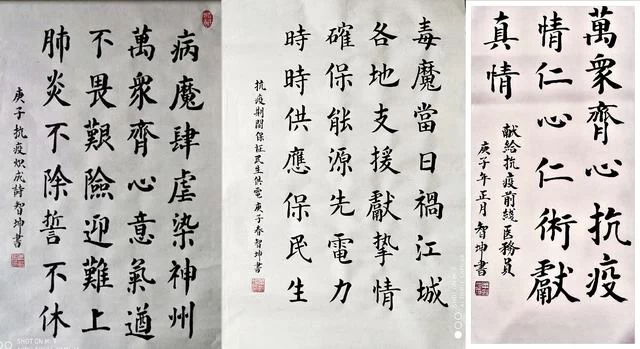 病魔肆虐染神州
萬衆齊心意氣遒
不畏艱險迎難上
肺炎不除誓不休
庚子抗疫炽成詩智坤書
SHOT ON
毒魔當日禍江城
各地支援獻摯情
確保能源先電力
時時供應保民生
抗疫期間保证民生供電庚子春智坤書
萬衆齊心抗疫
情仁心仁術獻
真情
献给抗疫前綫医務員
庚子年正月智坤書